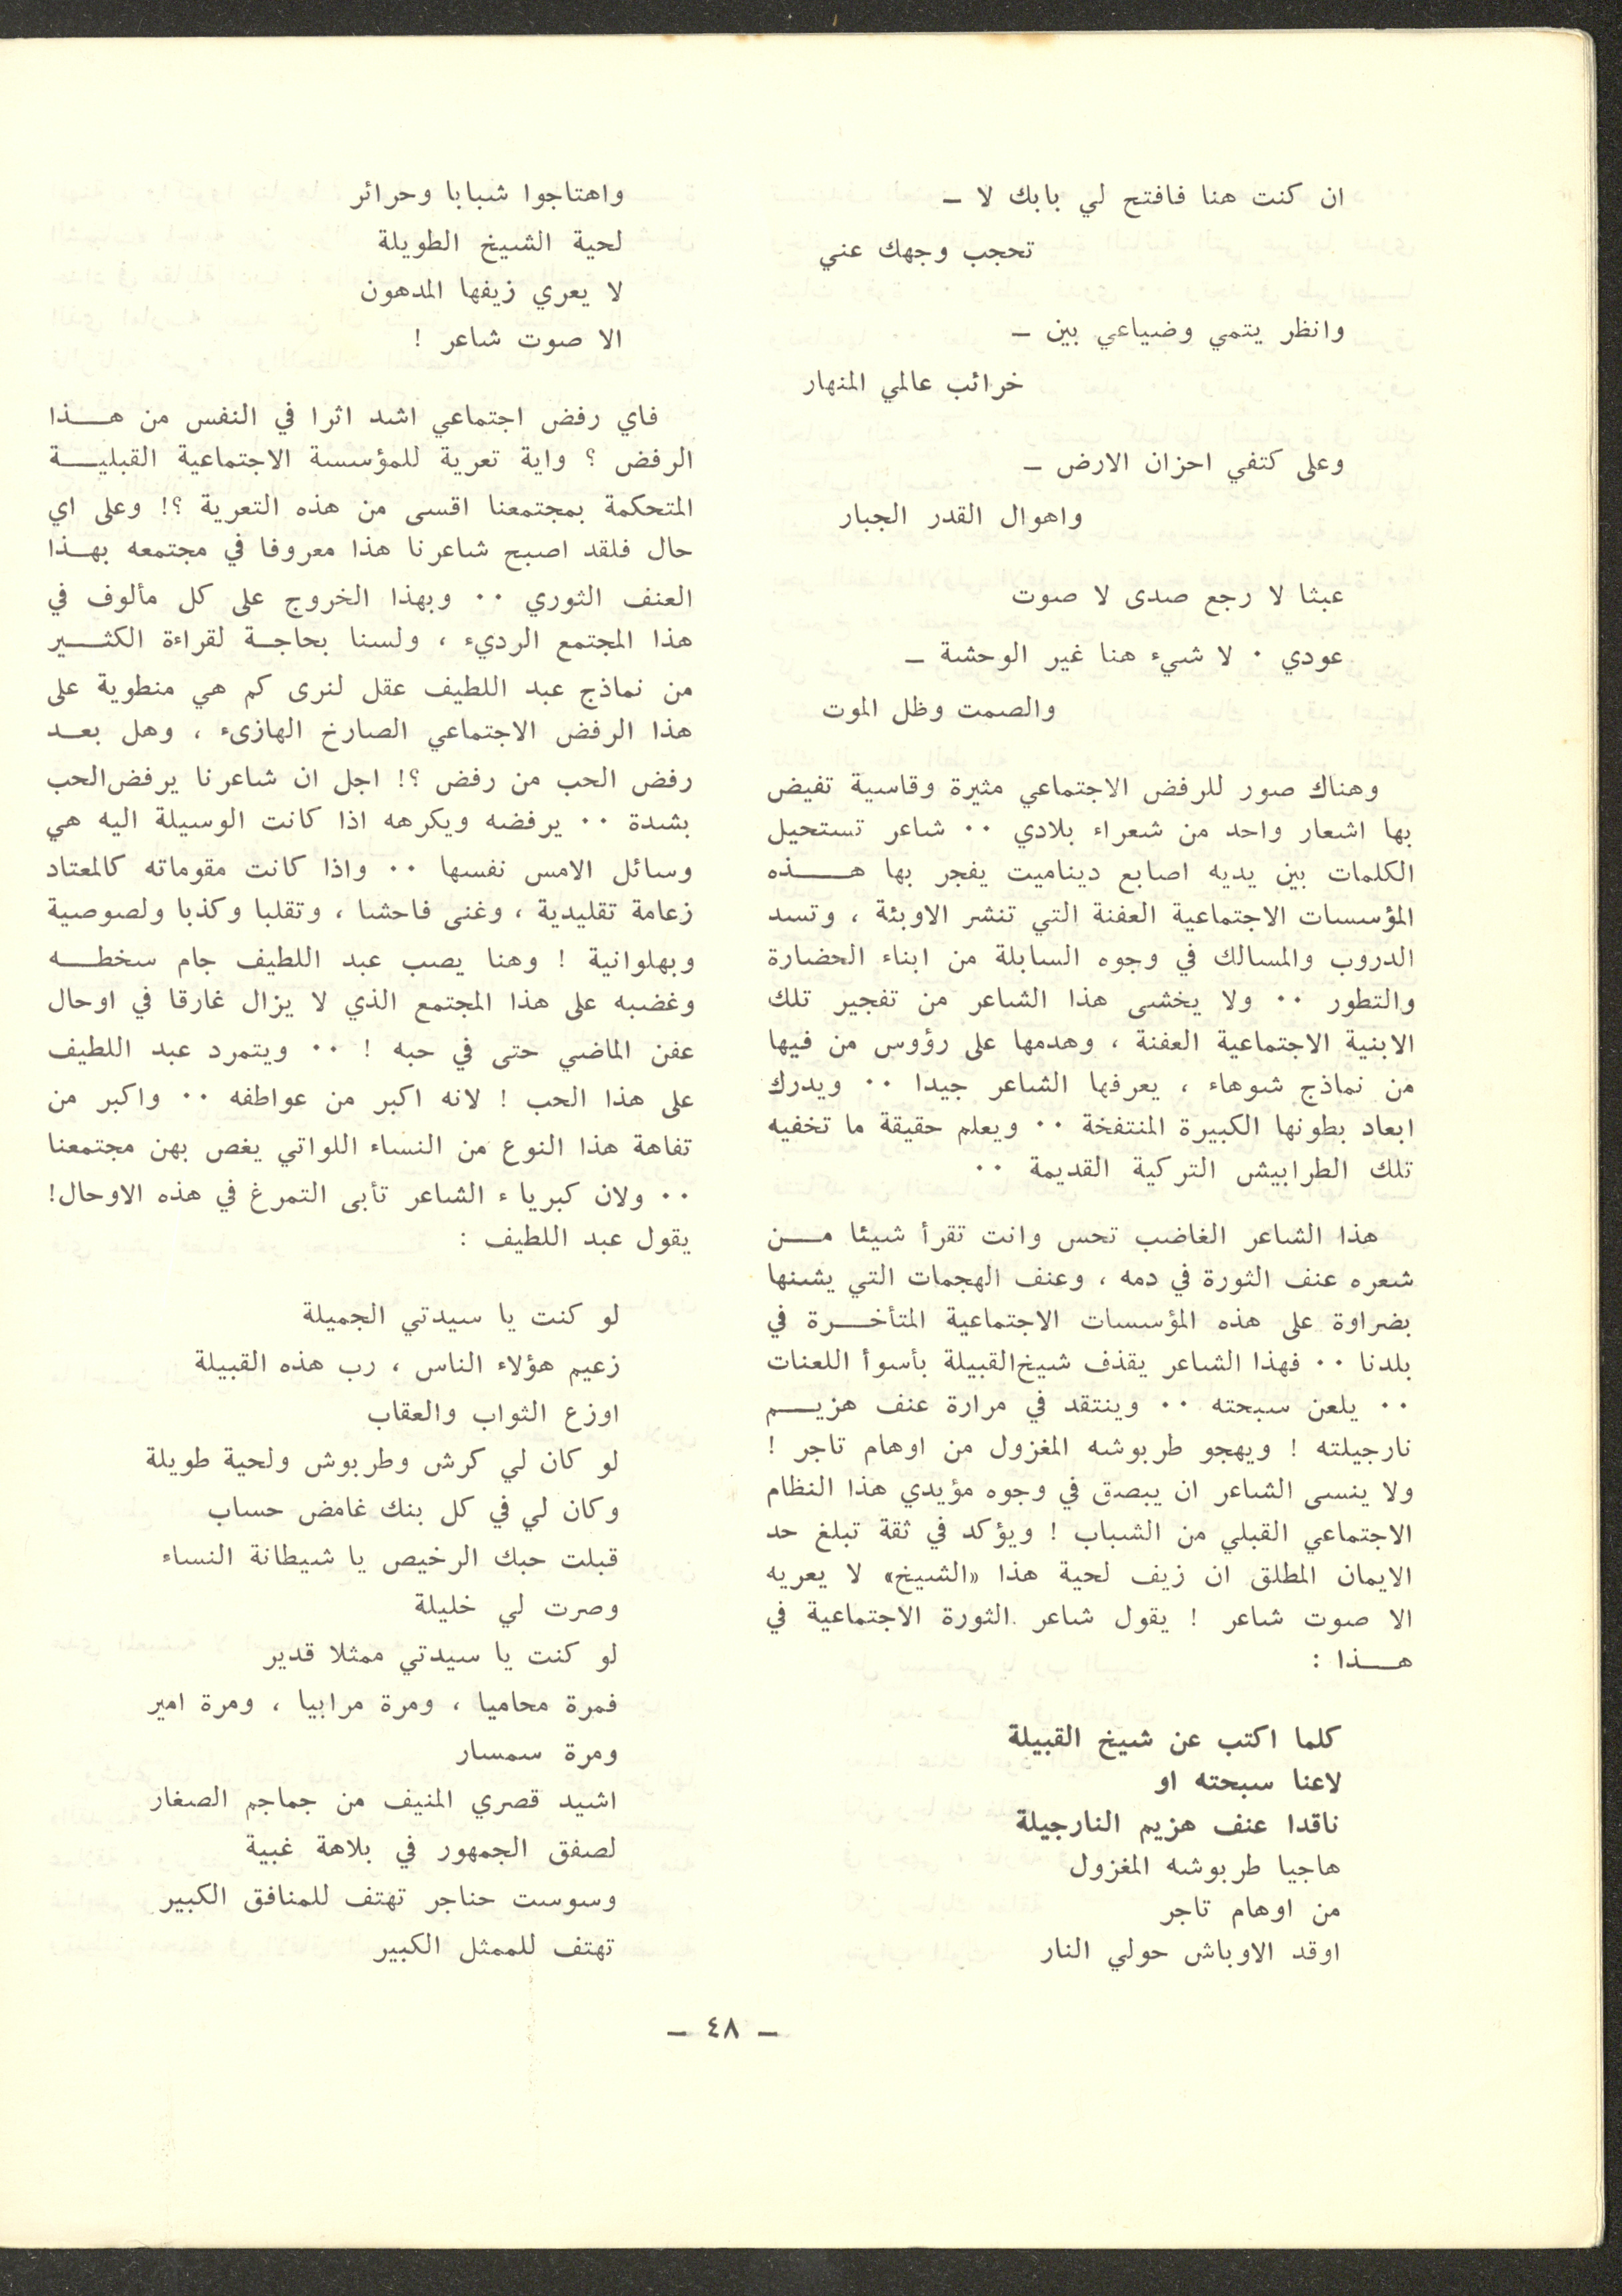 ان كنت هنا فافتح لي بابك لا ــ
تحجب وجهك عني
وانظر يتمي وضياعي بين ــ
خرائب عالمي المنهار
وعلى كتفي احزان الارض ــ
واهوال القدر الجبار
عبثا لا رجع صدى لا صوت
عودي ٠ لا شيء هنا غير الوحشة ــ
والصمت وظل الموت
وهناك صور للرفض الاجتماعي مثيرة وقاسية تفيض
بها اشعار واحد من شعراء بلادي ٠٠ شاعر تستحيل
الكلمات بين يديه اصابع ديناميت يفجر بها هـــــذه
المؤسسات الاجتماعية العفنة التي تنشر الاوبئة ، وتسد
الدروب والمسالك في وجوه السابلة من ابناء الحضارة
والتطور ٠٠ ولا يخشى هذا الشاعر من تفجير تلك
الابنية الاجتماعية العفنة ، وهدمها على رؤوس من فيها
من نماذج شوهاء ، يعرفها الشاعر جيدا ٠٠ ويدرك
ابعاد بطونها الكبيرة المنتفخة ٠٠ ويعلم حقيقة ما تخفيه
تلك الطرابيش التركية القديمة ٠٠
هذا الشاعر الغاضب تحس وانت تقرأ شيئا مـــن
شعره عنف الثورة في دمه ، وعنف الهجمات التي يشنها
بضراوة على هذه المؤسسات الاجتماعية المتأخـــرة في
بلدنا ٠٠ فهذا الشاعر يقذف شيخ القبيلة بأسوأ اللعنات
٠٠ يلعن سبحته ٠٠ وينتقد في مرارة عنف هزيـــم
نارجيلته ! ويهجو طربوشه المغزول من اوهام تاجر !
ولا ينسى الشاعر ان يبصق في وجوه مؤيدي هذا النظام
الاجتماعي القبلي من الشباب ! ويؤكد في ثقة تبلغ حد
الايمان المطلق ان زيف لحية هذا «الشيخ» لا يعريه
الا صوت شاعر ! يقول شاعر الثورة الاجتماعية في
هـــذا :
كلما اكتب عن شيخ القبيلة
لاعنا سبحته او
ناقدا عنف هزيم النارجيلة
هاجيا طربوشه المغزول
من اوهام تاجر
اوقد الاوباش حولي النار
واهتاجوا شبابا وحرائر
لحية الشيخ الطويلة
لا يعري زيفها المدهون
الا صوت شاعر !
فاي رفض اجتماعي اشد اثرا في النفس من هـــذا
الرفض ؟ واية تعرية للمؤسسة الاجتماعية القبليـــة
المتحكمة بمجتمعنا اقسى من هذه التعرية ؟! وعلى اي
حال فلقد اصبح شاعرنا هذا معروفا في مجتمعه بهـذا
العنف الثوري ٠٠ وبهذا الخروج على كل مألوف في
هذا المجتمع الرديء ، ولسنا بحاجـة لقراءة الكثـــير
من نماذج عبد اللطيف عقل لنرى كم هي منطوية على
هذا الرفض الاجتماعي الصارخ الهازىء ، وهل بعـد
رفض الحب من رفض ؟! اجل ان شاعرنا يرفض الحب
بشدة ٠٠ يرفضه ويكرهه اذا كانت الوسيلة اليه هي
وسائل الامس نفسها ٠٠ واذا كانت مقوماته كالمعتاد
زعامة تقليدية ، وغنى فاحشا ، وتقلبا وكذبا ولصوصية
وبهلوانية ! وهنا يصب عبد اللطيف جام سخطـــه
وغضبه على هذا المجتمع الذي لا يزال غارقا في اوحال
عفن الماضي حتى في حبه ! ٠٠ ويتمرد عبد اللطيف
على هذا الحب ! لانه اكبر من عواطفه ٠٠ واكبر من
تفاهة هذا النوع من النساء اللواتي يغص بهن مجتمعنا
٠٠ ولان كبرياء الشاعر تأبى التمرغ في هذه الاوحال!
يقول عبد اللطيف :
لو كنت يا سيدتي الجميلة
زعيم هؤلاء الناس ، رب هذه القبيلة
اوزع الثواب والعقاب
لو كان لي كرش وطربوش ولحية طويلة
وكان لي في كل بنك غامض حساب
قبلت حبك الرخيص يا شيطانة النساء
وصرت لي خليلة
لو كنت يا سيدتي ممثلا قدير
فمرة محاميا ، ومرة مرابيا ، ومرة امير
ومرة سمسار
اشيد قصري المنيف من جماجم الصغار
لصفق الجمهور في بلاهة غبية
وسوست حناجر تهتف للمنافق الكبير
تهتف للممثل الكبير
ــ ٤٨ ــ